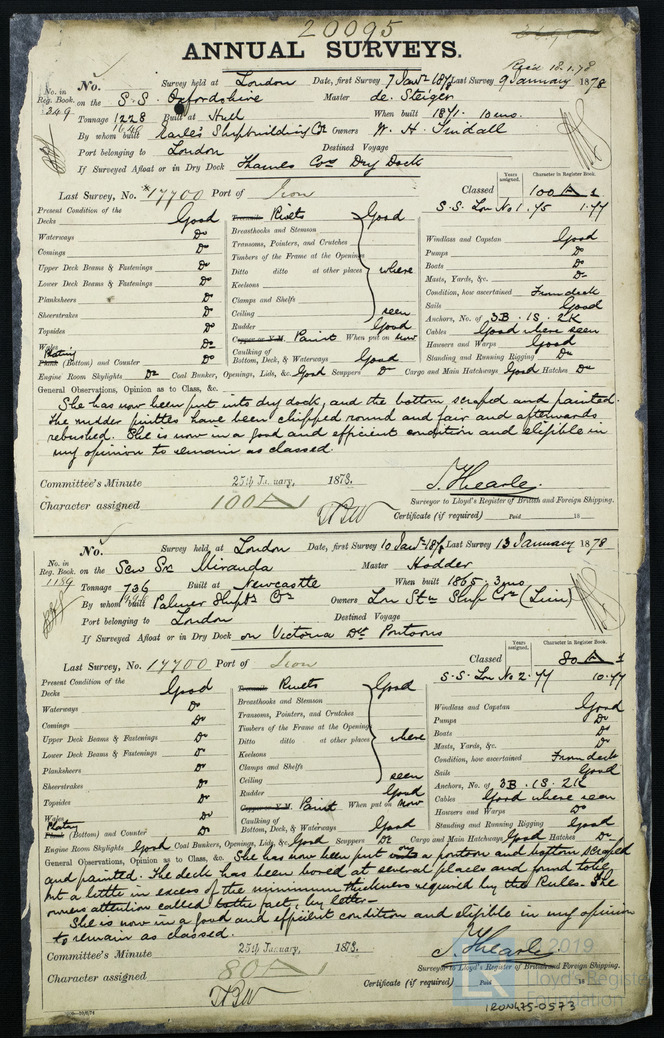 20095
ANNUAL SURVEYS.
Rec'd 18.1.78
No. Survey held at London Date, first Survey 7 Janry 1878 Last Survey 9 January 1878
No. in Reg. Book. on the S.S. Oxfordshire Master de Steiger
349 Tonnage 1228 Built at Hull When built 1871. 10 mo.
1646
By whom built Earle's Shipbuilding Co Owners W. H. Tindall
Port belonging to London Destined Voyage
If Surveyed Afloat or in Dry Dock Thames Cos Dry Dock
Last Survey, No. 17700 Port of Iron Classed 100 A 1
Years assigned. Character in Register Book.
S.S. Lon No 1. 75 1.77
Present Condition of the
Decks Good
Waterways Do
Comings Do
Upper Deck Beams & Fastenings Do
Lower Deck Beams & Fastenings Do
Planksheers Do
Sheerstrakes Do
Topsides Do
Wales Do
Plating
Plank (Bottom) and Counter Do
Treenails Rivets Good
Breasthooks and Stemson
Transoms, Pointers, and Crutches
Timbers of the Frame at the Openings
Ditto ditto at other places where
Keelsons
Clamps and Shelfs
Ceiling seen
Rudder Good
Copper or Y.M. Paint When put on now
Caulking of
Bottom, Deck, & Waterways Good
Windlass and Capstan Good
Pumps Do
Boats Do
Masts, Yards, &c. Do
Condition, how ascertained From deck
Sails Good
Anchors, No. of 3B. 1S. 2K
Cables Good where seen
Hawsers and Warps Good
Standing and Running Rigging Do
Engine Room Skylights Do Coal Bunker, Openings, Lids, &c. Good Scuppers Do Cargo and Main Hatchways Good Hatches Do
General Observations, Opinion as to Class, &c.
She has now been put into dry dock, and the bottom scraped and painted.
The rudder pintles have been chipped round and fair and afterwards
rebushed. She is now in a good and efficient condition and eligible in
my opinion to remain as classed.
Committee's Minute 25th January, 1878.
J. Hearle.
Surveyor to Lloyd's Register of British and Foreign Shipping.
Character assigned 100 A 1
Certificate (if required) Paid 18
No. Survey held at London Date, first Survey 10 Janry 1878 Last Survey 13 January 1878
No. in Reg. Book. on the Scw Sr Miranda Master Hodder
1189 Tonnage 736 Built at Newcastle When built 1865. 3 mo
By whom built Palmer Shipbg Co Owners Lon Stm Ship Coy (Lim)
Port belonging to London Destined Voyage
If Surveyed Afloat or in Dry Dock on Victoria Dk Pontoons
Last Survey, No. 17700 Port of Iron Classed 80 A 1
Years assigned. Character in Register Book.
S.S. Lon No 2. 77 10.77
Present Condition of the
Decks Good
Waterways Do
Comings Do
Upper Deck Beams & Fastenings Do
Lower Deck Beams & Fastenings Do
Planksheers Do
Sheerstrakes Do
Topsides Do
Wales Do
Plating
Plank (Bottom) and Counter Do
Treenails Rivets Good
Breasthooks and Stemson
Transoms, Pointers, and Crutches
Timbers of the Frame at the Openings
Ditto ditto at other places where
Keelsons
Clamps and Shelfs
Ceiling seen
Rudder Good
Copper or Y.M. Paint When put on now
Caulking of
Bottom, Deck, & Waterways Good
Windlass and Capstan Good
Pumps Do
Boats Do
Masts, Yards, &c. Do
Condition, how ascertained From deck
Sails Good
Anchors, No. of 3B. 1S. 2K
Cables Good where seen
Hawsers and Warps Do
Standing and Running Rigging Good
Engine Room Skylights Good Coal Bunkers, Openings, Lids, &c. Good Scuppers Do Cargo and Main Hatchways Good Hatches Do
General Observations, Opinion as to Class, &c. She has now been put on a pontoon and bottom scraped
and painted. The deck has been bored at several places and found to be
but a little in excess of the minimum thickness required by the Rules. The
owners attention called to the fact, by letter.
She is now in a good and efficient condition and eligible in my opinion
to remain as classed.
Committee's Minute 25th January, 1878.
J. Hearle
Surveyor to Lloyd's Register of British and Foreign Shipping.
Character assigned 80 A 1
Certificate (if required) Paid 18
© 2019
Lloyd's Register
Foundation
IRON475-0573